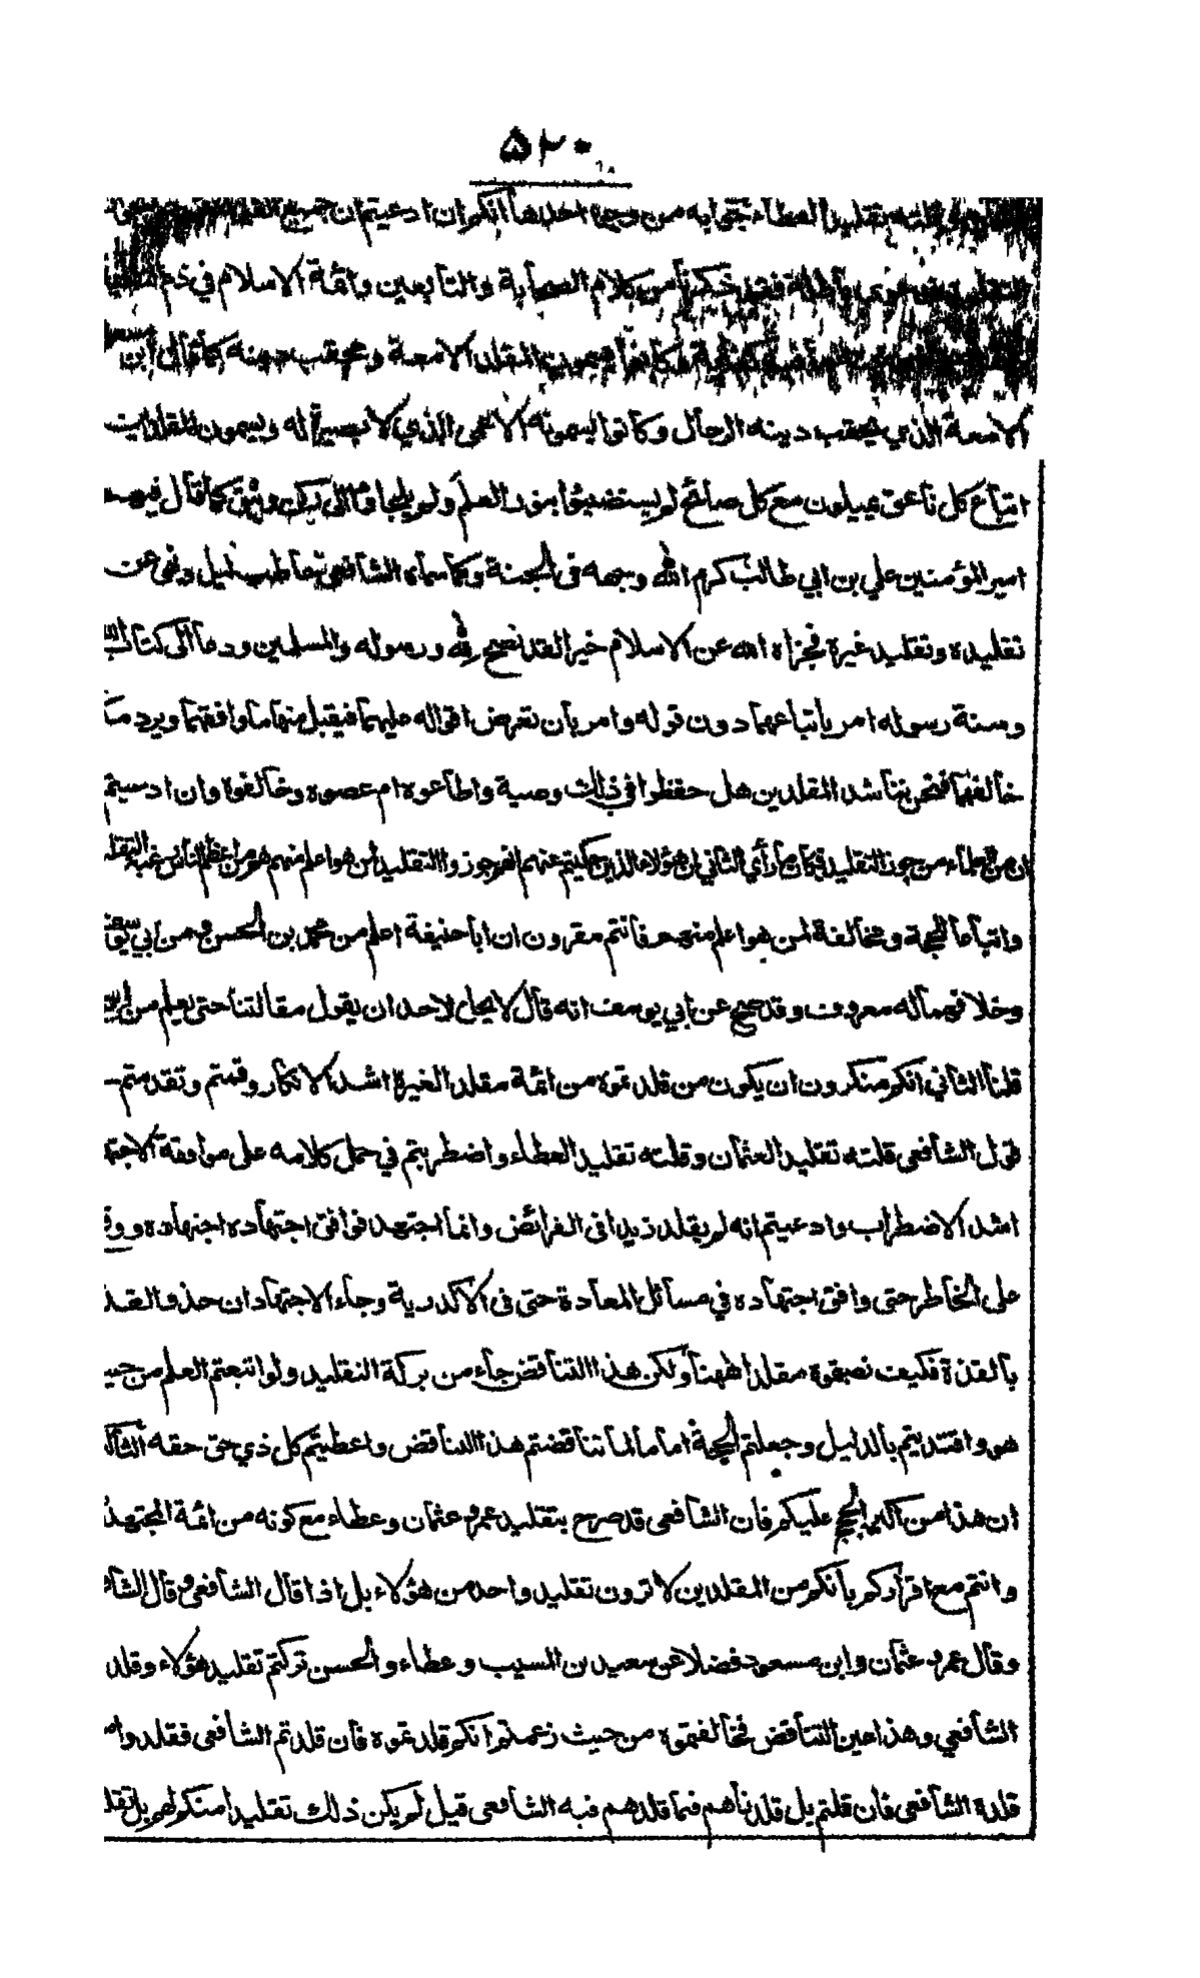 ٥٢٠
قلته تقليدا لعطاء جوابه من وجوه احدها انكم ان ادعيتم ان جميع
فقد ذكرنا من كلام الصحابة والتابعين وائمة الاسلام في ذم
يسمون المقلد الامعة ومحقب دينه كما قال ابن
الامعة الذي يحقب دينه الرجال وكانوا يسمونه الاعمى الذي لا بصيرة له ويسمون المقلدين
اتباع كل ناعق يميلون مع كل صائح لم يستضيئوا بنور العلم ولم يلجاوا الى ركن وثيق كما قال فيهم
امير المؤمنين علي بن ابي طالب كرم الله وجهه في الجنة وكما سماه الشافعي حاطب ليل ونهى عن
تقليده وتقليد غيره فجزاه الله عن الاسلام خيرا لقد نصح لله ورسوله والمسلمين ودعا الى كتاب الله
وسنة رسوله امر باتباعهما دون قوله وامر بان تعرض اقواله عليهما فيقبل منها ما وافقهما ويرد ما
خالفهما فنحن نناشد المقلدين هل حفظوا في ذلك وصية واطاعوه ام عصوه وخالفوه وان ادعيتم
ان من العلماء من جوز التقليد فكان ما رأي الثاني ان هؤلاء الذين حكيتم عنهم انهم جوزوا التقليد لمن هو اعلم منهم هم من اعظم الناس رغبة
واتباعا للحجة ومخالفة لمن هو اعلم منهم فانتم مقرون ان ابا حنيفة اعلم من محمد بن الحسن ومن ابي يوسف
وخلافهما له معروف وقد صح عن ابي يوسف انه قال لا يحل لاحد ان يقول مقالتنا حتى يعلم من اين
قلنا الثاني انكم منكرون ان يكون من قلدتموه من ائمة مقلدا لغيره اشد الانكار وقمتم وقعدتم
قول الشافعي قلته تقليدا لعثمان وقلته تقليدا لعطاء واضطربتم في حمل كلامه على موافقة الاجتهاد
اشد الاضطراب وادعيتم انه لم يقلد زيدا في الفرائض وانما اجتهد فوافق اجتهاده اجتهاده ووقع
على الخاطر حتى وافق اجتهاده في مسائل المعادة حتى في الاكدرية وجاء الاجتهادان حذو القذة
بالقذة فكيف نصبتموه مقلدا ههنا ولكن هذا التناقض جاء من بركة التقليد ولو اتبعتم العلم من حيث
هو واقتديتم بالدليل وجعلتم الحجة اماما لما تناقضتم هذا التناقض واعطيتم كل ذي حق حقه الثالث
ان هذا من اكبر الحجج عليكم فان الشافعي قد صرح بتقليد عمر وعثمان وعطاء مع كونه من ائمة المجتهدين
وانتم مع اقراركم بانكم من المقلدين لا ترون تقليد واحد من هؤلاء بل اذا قال الشافعي وقال
وقال عمر وعثمان وابن مسعود فضلا عن سعيد بن المسيب وعطاء والحسن تركتم تقليد هؤلاء وقلدتم
الشافعي وهذا عين التناقض فخالفتموه من حيث زعمتم انكم قلدتموه فان قلدتم الشافعي فقلدوا من
قلده الشافعي فان قلتم بل قلدناهم فيما قلدهم فيه الشافعي قيل لم يكن ذلك تقليدا منكم لهم بل تقليدا